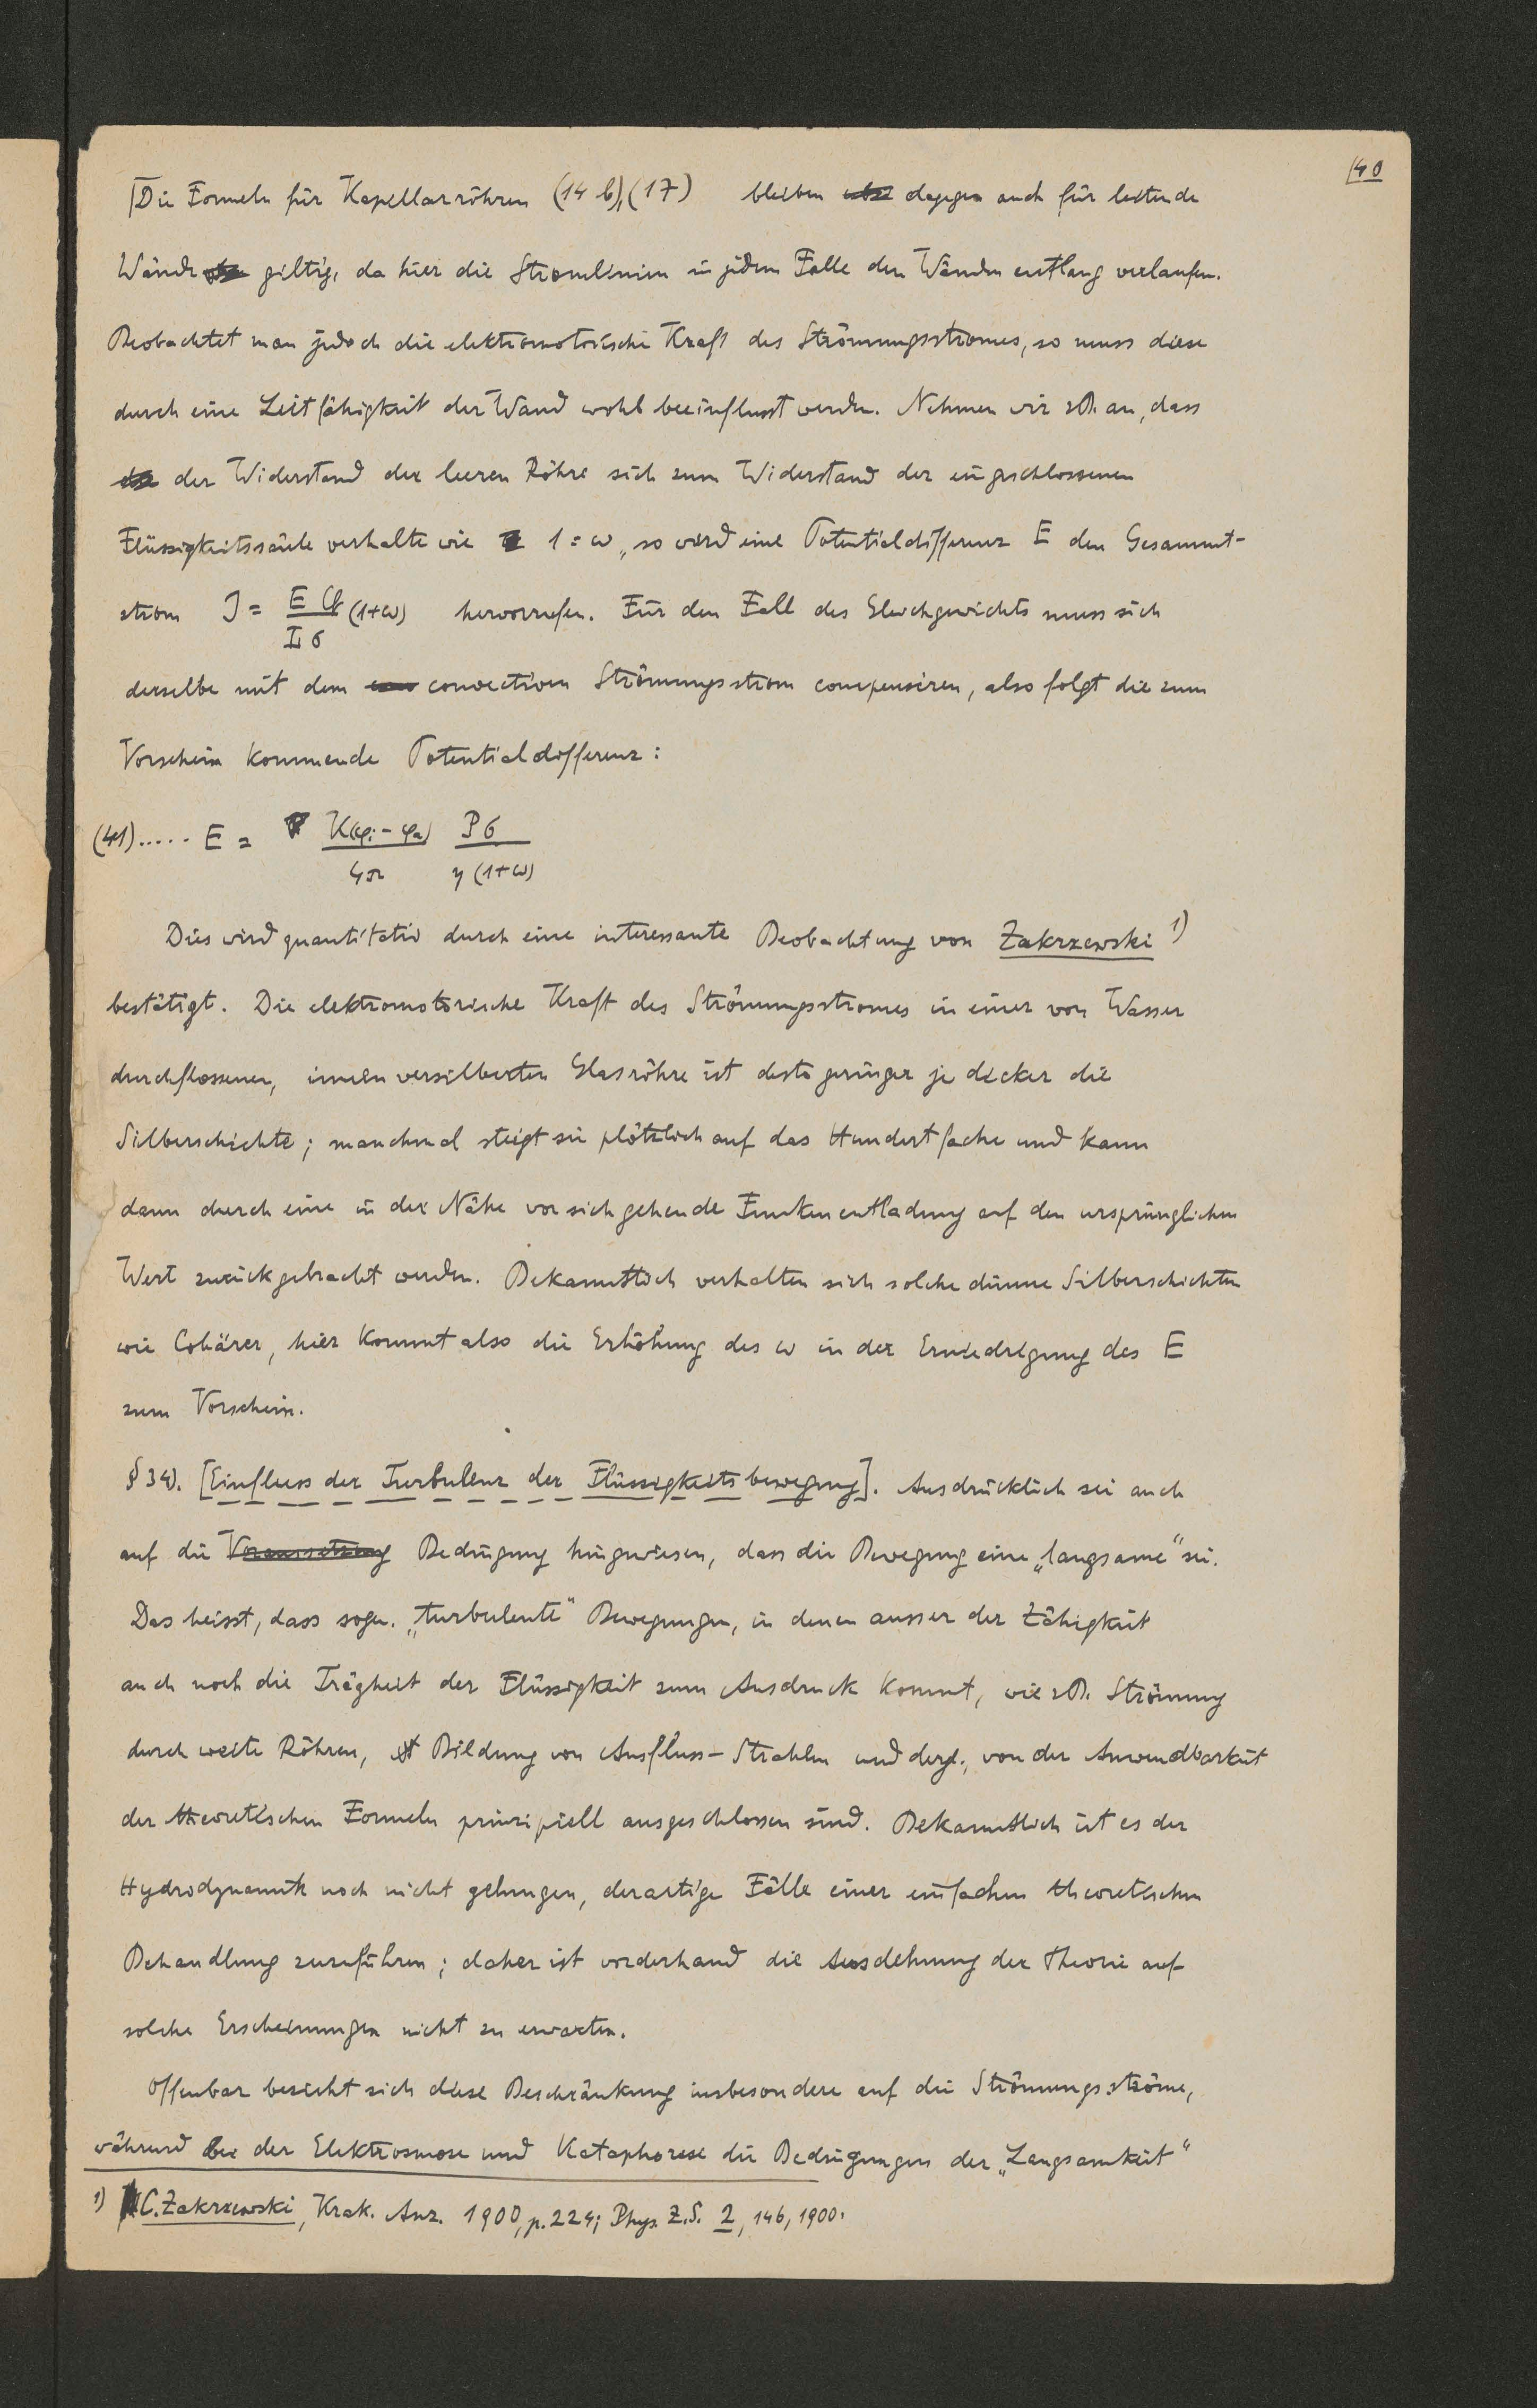 40
Die Formeln für Kapillarröhren (14 b), (17) bleiben dagegen auch für leitende
Wände giltig, da hier die Stromlinien in jedem Falle den Wänden entlang verlaufen.
Beobachtet man jedoch die elektromotorische Kraft des Strömungsstromes, so muss diese
durch eine Leitfähigkeit der Wand wohl beeinflusst werden. Nehmen wir zB. an, dass
der Widerstand der leeren Röhre sich zum Widerstand der eingeschlossenen
Flüssigkeitssäule verhalte wie 1 : ω, so wird eine Potentialdifferenz E den Gesammt-
strom J = E q / L σ (1+ω) hervorrufen. Für den Fall des Gleichgewichts muss sich
derselbe mit dem convectiven Strömungsstrom compensiren, also folgt die zum
Vorschein kommende Potentialdifferenz:
(41)..... E = K(φi - φa) / 4π P σ / η (1+ω)
Dies wird quantitativ durch eine interessante Beobachtung von Zakrzewski 1)
bestätigt. Die elektromotorische Kraft des Strömungsstromes in einer von Wasser
durchflossenen, innen versilberten Glasröhre ist desto geringer je dicker die
Silberschichte; manchmal steigt sie plötzlich auf das Hundertfache und kann
dann durch eine in der Nähe vor sich gehende Funkenentladung auf den ursprünglichen
Wert zurückgebracht werden. Bekanntlich verhalten sich solche dünne Silberschichten
wie Cohärer, hier kommt also die Erhöhung des ω in der Erniedrigung des E
zum Vorschein.
§ 34). [Einfluss der Turbulenz der Flüssigkeitsbewegung]. Ausdrücklich sei auch
auf die Voraussetzung Bedingung hingewiesen, dass die Bewegung eine „langsame“ sei.
Das heisst, dass sogen. „turbulente“ Bewegungen, in denen ausser der Zähigkeit
auch noch die Trägheit der Flüssigkeit zum Ausdruck kommt, wie zB. Strömung
durch weite Röhren, Bildung von Ausfluss-Strahlen und dergl., von der Anwendbarkeit
der theoretischen Formeln prinzipiell ausgeschlossen sind. Bekanntlich ist es der
Hydrodynamik noch nicht gelungen, derartige Fälle einer einfachen theoretischen
Behandlung zuzuführen; daher ist vorderhand die Ausdehnung der Theorie auf
solche Erscheinungen nicht zu erwarten.
Offenbar bezieht sich diese Beschränkung insbesondere auf die Strömungsströme,
während bei der Elektrosmose und Kataphorese die Bedingungen der „Langsamkeit“
1) C. Zakrzewski, Krak. Anz. 1900, p. 224; Phys. Z.S. 2, 146, 1900.